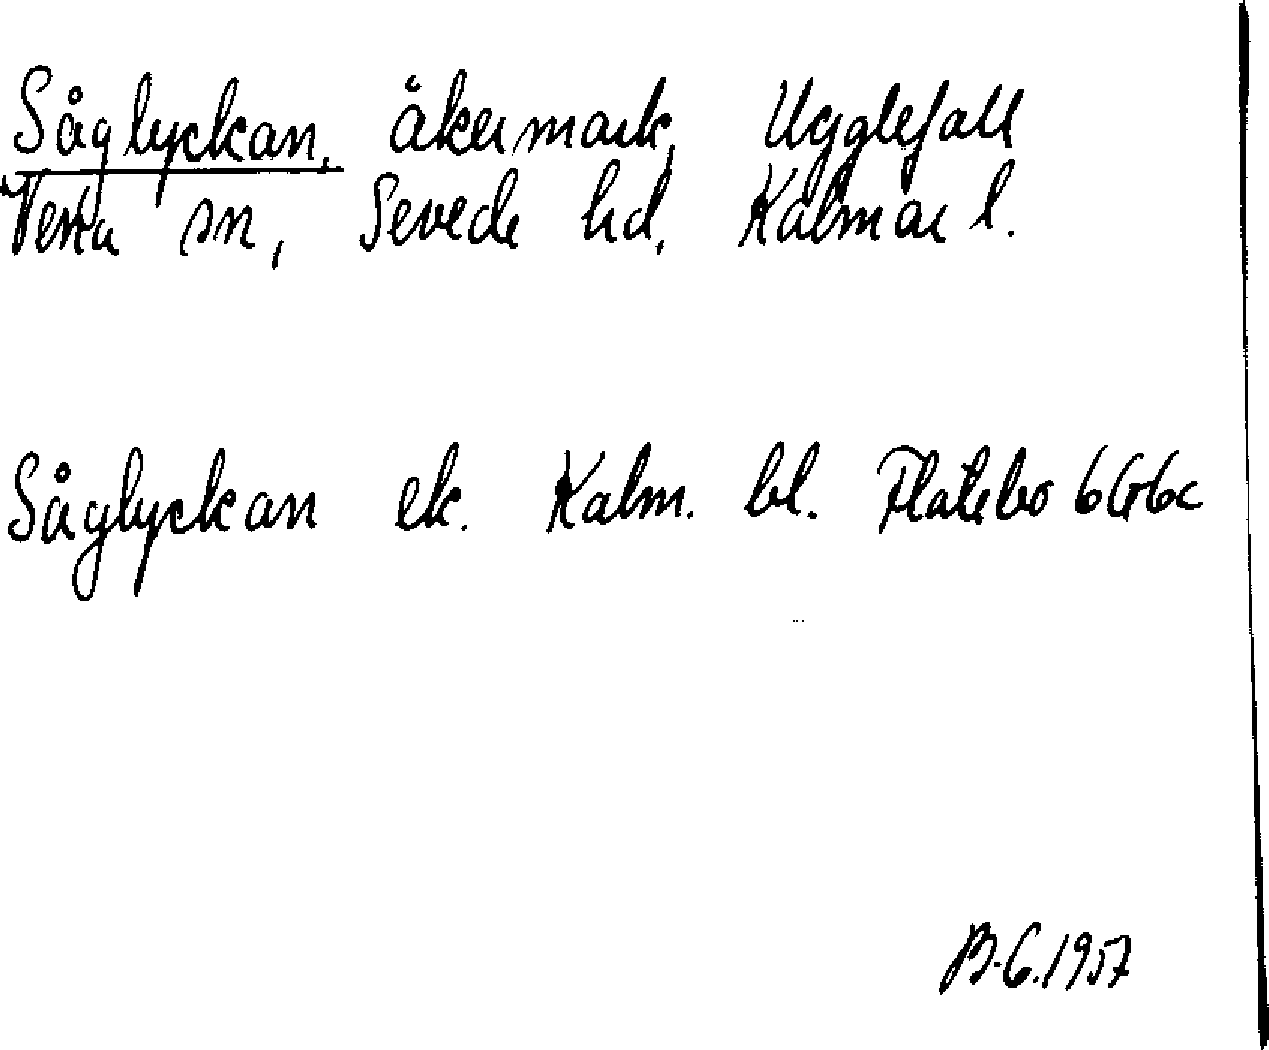 Såglyckan, åkermark, Ugglefall
Vena sn, Sevede hd, Kalmar l.
Såglyckan ek. Kalm. bl. Flatebo 6G6c
B.G.1957